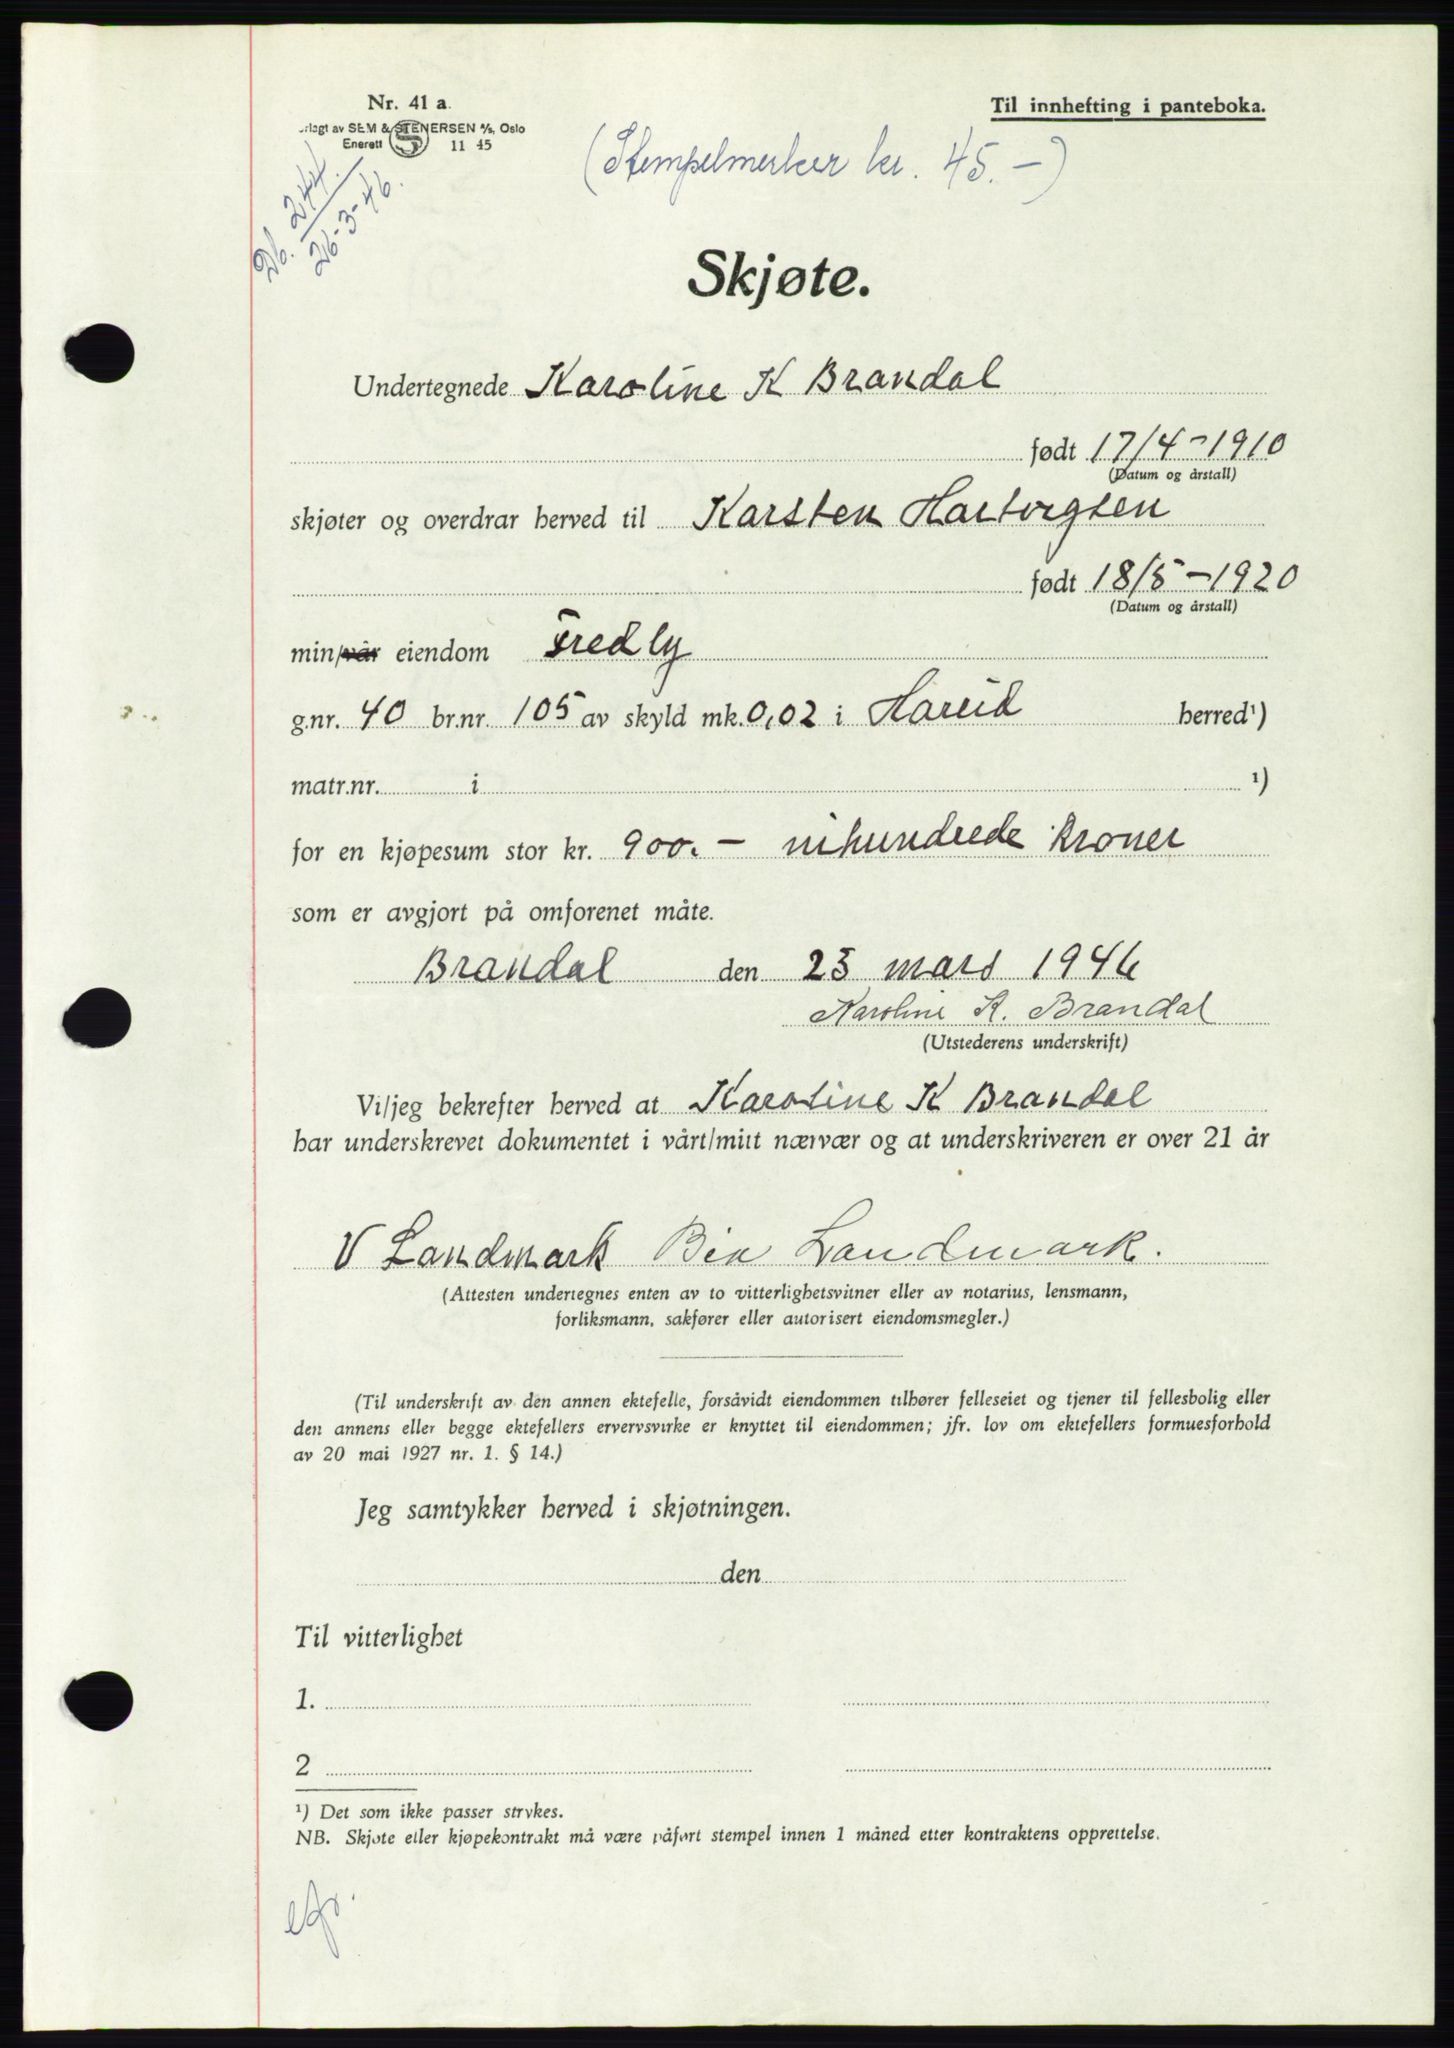 Nr. 41 a.
Til innhefting i panteboka.
rlagt av SEM & STENERSEN A/S, Oslo
Enerett 11 45
(Stempelmerker kr. 45.-)
Db. 244.
26-3-46.
Skjøte.
Undertegnede Karoline K Brandal
født 17/4-1910
(Datum og årstall)
skjøter og overdrar herved til Karsten
født 18/5-1920
(Datum og årstall)
min/vår eiendom Fredly
g.nr. 40 br.nr. 105 av skyld mk. 0,02 i Hareid herred¹)
matr.nr. i ¹)
for en kjøpesum stor kr. 900.- nihundrede kroner
som er avgjort på omforenet måte.
Brandal den 23 mars 1946
Karoline K. Brandal
(Utstederens underskrift)
Vi/jeg bekrefter herved at Karoline K Brandal
har underskrevet dokumentet i vårt/mitt nærvær og at underskriveren er over 21 år
V Landmark Bea Landmark.
(Attesten undertegnes enten av to vitterlighetsvitner eller av notarius, lensmann,
forliksmann, sakfører eller autorisert eiendomsmegler.)
(Til underskrift av den annen ektefelle, forsåvidt eiendommen tilhører felleseiet og tjener til fellesbolig eller
den annens eller begge ektefellers ervervsvirke er knyttet til eiendommen; jfr. lov om ektefellers formuesforhold
av 20 mai 1927 nr. 1. § 14.)
Jeg samtykker herved i skjøtningen.
den
Til vitterlighet
1.
2
¹) Det som ikke passer strykes.
NB. Skjøte eller kjøpekontrakt må være påført stempel innen 1 måned etter kontraktens opprettelse.